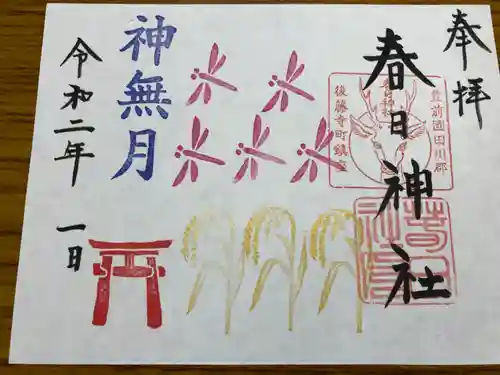 奉拝
春日神社
豊前国田川郡
春日神社
後藤寺町鎮座
神無月
令和二年 一日